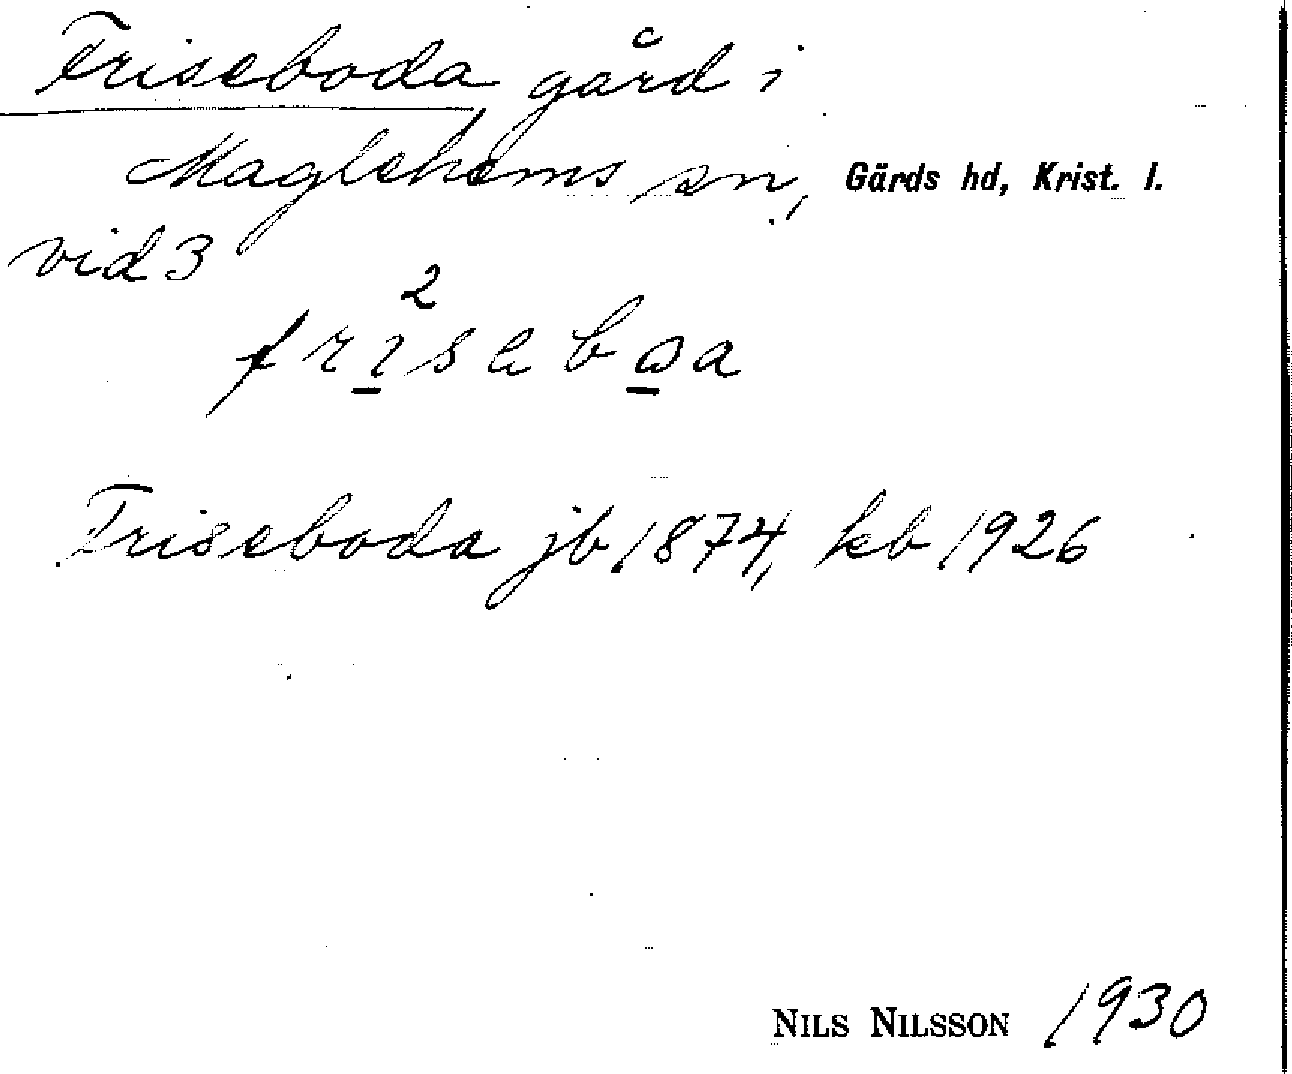 Friseboda gård i
Maglehems sn, Gärds hd, Krist. l.
vid 3
2
frısabωa
Friseboda jb 1874, kb 1926
NILS NILSSON 1930